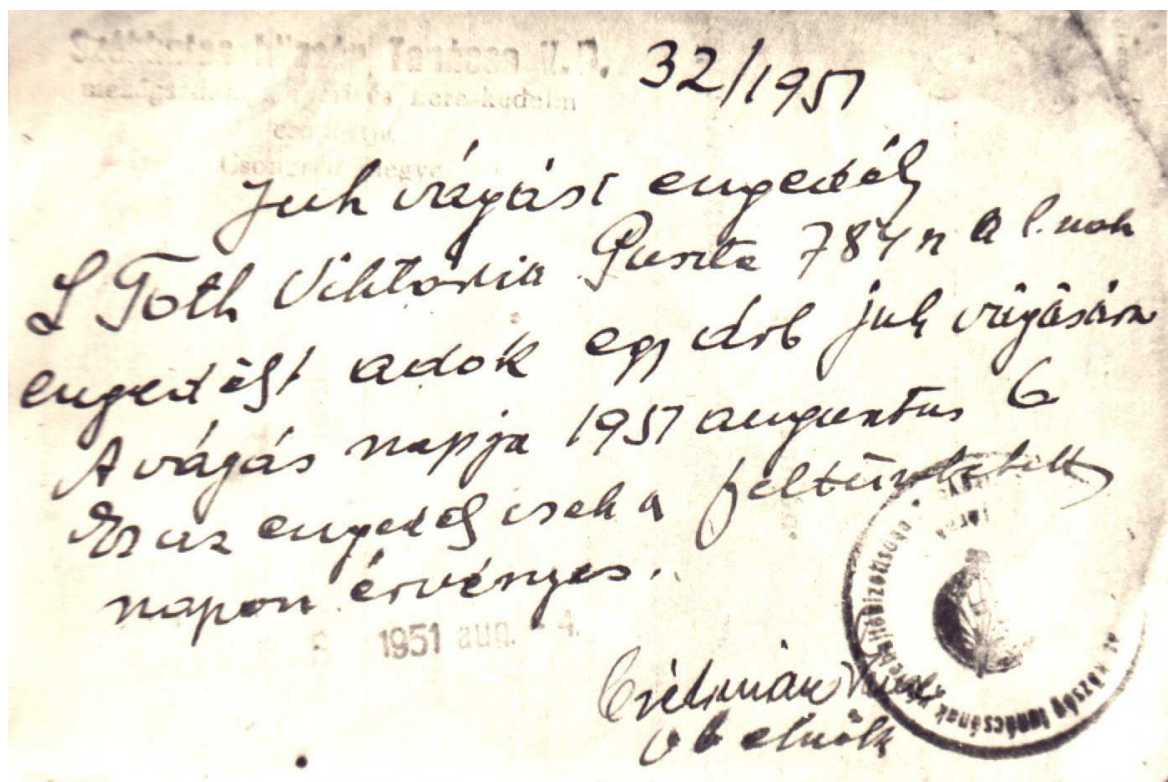 32/1951
mezőgazdasági és kereskedelmi
Csongrád megye
Juh vágási engedély
S Toth Viktoria Puszta 784 n a l. nek
engedélyt adok egy drb juh vágására
A vágás napja 1951 augusztus 6
Ez az engedély csak a feltüntetett
napon érvényes.
1951 aug. 4.
vb elnök
község tanácsának végrehajtóbizottsága